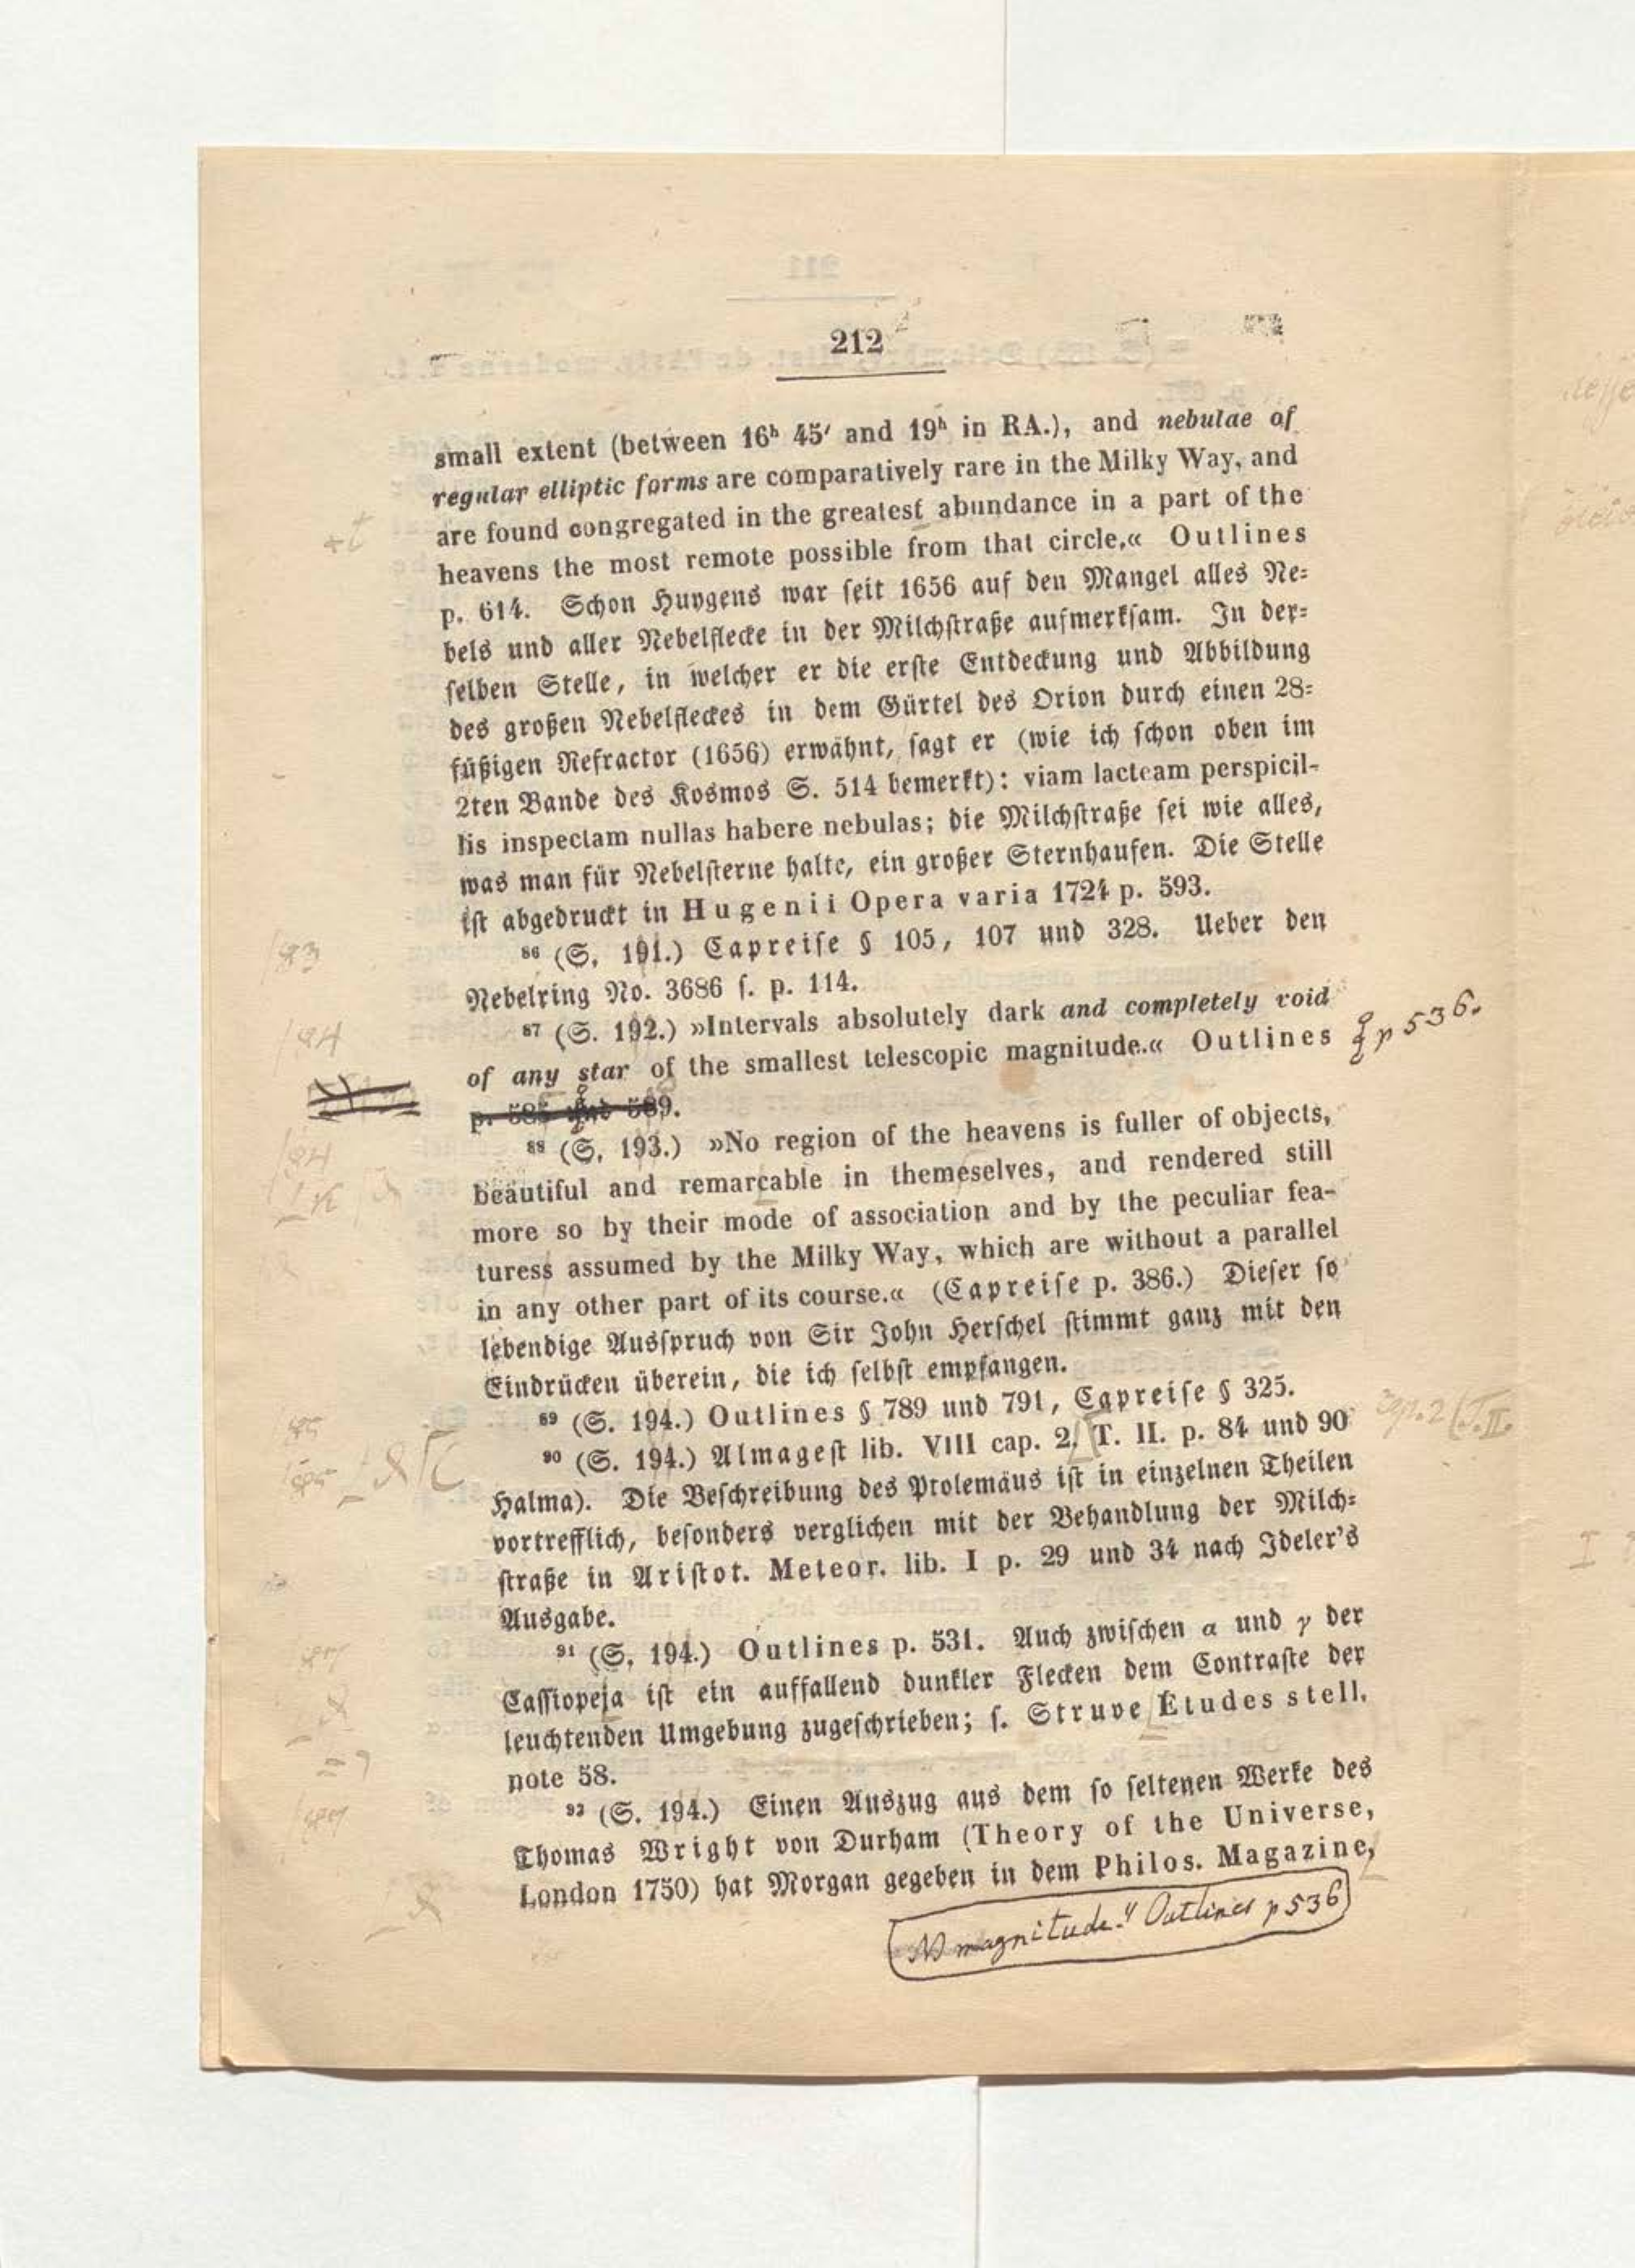 212
small extent (between 16ʰ 45′ and 19ʰ in RA.), and nebulae of
regular elliptic forms are comparatively rare in the Milky Way, and
are found congregated in the greatest abundance in a part of the
heavens the most remote possible from that circle.« Outlines
p. 614. Schon Huygens war ſeit 1656 auf den Mangel alles Ne⸗
bels und aller Nebelflecke in der Milchſtraße aufmerkſam. In der⸗
ſelben Stelle, in welcher er die erſte Entdeckung und Abbildung
des großen Nebelfleckes in dem Gürtel des Orion durch einen 28⸗
füßigen Refractor (1656) erwähnt, ſagt er (wie ich ſchon oben im
2ten Bande des Kosmos S. 514 bemerkt): viam lacteam perspicil-
lis inspectam nullas habere nebulas; die Milchſtraße ſei wie alles,
was man für Nebelſterne halte, ein großer Sternhaufen. Die Stelle
iſt abgedruckt in Hugenii Opera varia 1724 p. 593.
⁸⁶ (S. 191.) Capreiſe § 105, 107 und 328. Ueber den
Nebelring No. 3686 ſ. p. 114.
⁸⁷ (S. 192.) »Intervals absolutely dark and completely void
of any star of the smallest telescopic magnitude.« Outlines p 536.
p. 585 und 589.
⁸⁸ (S. 193.) »No region of the heavens is fuller of objects,
beautiful and remarcable in themeselves, and rendered still
more so by their mode of association and by the peculiar fea-
turess assumed by the Milky Way, which are without a parallel
in any other part of its course.« (Capreiſe p. 386.) Dieſer ſo
lebendige Ausſpruch von Sir John Herſchel ſtimmt ganz mit den
Eindrücken überein, die ich ſelbſt empfangen.
⁸⁹ (S. 194.) Outlines § 789 und 791, Capreiſe § 325.
⁹⁰ (S. 194.) Almageſt lib. VIII cap. 2. T. II. p. 84 und 90
Halma). Die Beſchreibung des Ptolemäus iſt in einzelnen Theilen
vortrefflich, beſonders verglichen mit der Behandlung der Milch⸗
ſtraße in Ariſtot. Meteor. lib. I p. 29 und 34 nach Ideler's
Ausgabe.
⁹¹ (S. 194.) Outlines p. 531. Auch zwiſchen α und γ der
Caſſiopeja iſt ein auffallend dunkler Flecken dem Contraſte der
leuchtenden Umgebung zugeſchrieben; ſ. Struve Etudes stell.
note 58.
⁹² (S. 194.) Einen Auszug aus dem ſo ſeltenen Werke des
Thomas Wright von Durham (Theory of the Universe,
London 1750) hat Morgan gegeben in dem Philos. Magazine,
magnitude." Outlines p 536